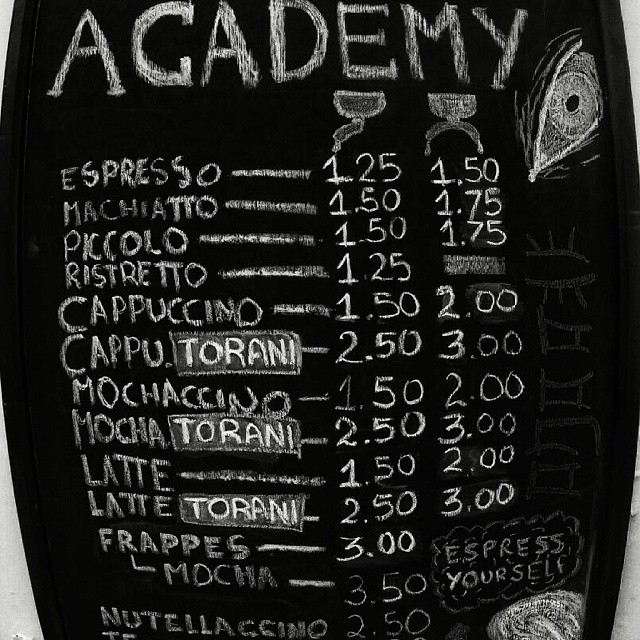 ACADEMY
ESPRESSO 1.25 1.50
MACHIATTO 1.50 1.75
PICCOLO 1.50 1.75
RISTRETTO 1.25
CAPPUCCINO 1.50 2.00
CAPPU. TORANI 2.50 3.00
MOCHACCINO 1.50 2.00
MOCHA. TORANI 2.50 3.00
LATTE 1.50 2.00
LATTE TORANI 2.50 3.00
FRAPPES 3.00
MOCHA 3.50
ESPRESS
YOURSELF
NUTELLACCINO 2.50